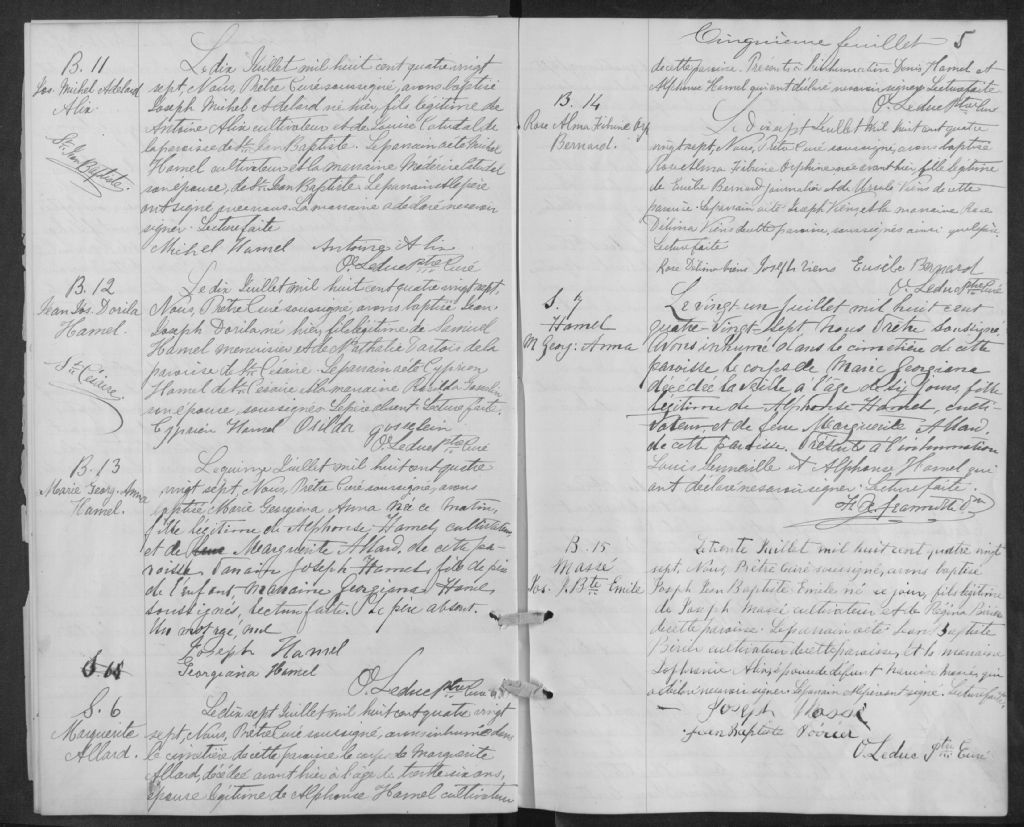 B. 11
Jos. Michel Adelard
Alix
St. Jean Baptiste.
Le dix Juillet mil huit cent quatre vingt
sept, Nous, Prêtre Curé soussigné, avons baptisé
Joseph Michel Adelard né hier, fils légitime de
Antoine Alix cultivateur et de Louise
la paroisse de St. Jean Baptiste. Le parrain a été Michel
Hamel cultivateur et la marraine
son épouse, de St. Jean Baptiste. Le parrain et le père
ont signé avec nous. La marraine a déclaré ne savoir
signer. Lecture faite
Michel Hamel Antoine Alix
O. Leduc Ptre Curé
B. 12
Jean Jos. Dorila
Hamel.
St. Césaire.
Le dix Juillet mil huit cent quatre vingt sept,
Nous, Prêtre Curé soussigné, avons baptisé Jean
Joseph Dorila né hier, fils légitime de
Hamel menuisier et de Nathalie Dartois de la
paroisse de St. Césaire. Le parrain a été Cyprien
Hamel de St. Césaire et la marraine
son épouse, soussignés. Le père absent. Lecture faite.
Cyprien Hamel Osilda Gosselin
O. Leduc Ptre Curé
B. 13
Marie Georg. Anna
Hamel.
Le quinze Juillet mil huit cent quatre
vingt sept, Nous, Prêtre Curé soussigné, avons
baptisé Marie Georgiana Anna née ce matin,
fille légitime de Alphonse Hamel, cultivateur,
et de Marguerite Allard, de cette pa-
roisse. Parrain Joseph Hamel,
de l'enfant, Marraine Georgiana Hamel
soussignés, lecture faite. Le père absent.
Un mot rayé, nul
Joseph Hamel
Georgiana Hamel
O. Leduc Ptre Curé
S. 6
Marguerite
Allard.
Le dix sept Juillet mil huit cent quatre vingt
sept, Nous, Prêtre Curé soussigné, avons inhumé dans
le cimetière de cette paroisse le corps de Marguerite
Allard, décédée avant hier à l'âge de trente six ans,
épouse légitime de Alphonse Hamel cultivateur
Cinquième feuillet 5
de cette paroisse. Présents à l'inhumation Denis Hamel et
Alphonse Hamel qui ont déclaré ne savoir signer. Lecture faite
O. Leduc Ptre Curé
B. 14
Rose Alma Fibrine Orp.
Bernard.
Le dix sept Juillet mil huit cent quatre
vingt sept, Nous, Prêtre Curé soussigné, avons baptisé
Rose Alma Fibrine Orphise née avant hier, fille légitime
de Bernard journalier et de Viens de cette
paroisse. Le parrain a été Joseph Viens et la marraine Rose
Délima Viens de cette paroisse, soussignés ainsi que le père.
Lecture faite
Rose Délima Viens Joseph Viens Eusèbe Bernard
O. Leduc Ptre Curé
S. 7
Hamel
M. Georg. Anna
Le vingt un Juillet mil huit cent
quatre-vingt sept nous Prêtre soussigné
avons inhumé dans le cimetière de cette
paroisse le corps de Marie Georgiana
décédée la veille à l'âge de six jours, fille
légitime de Alphonse Hamel, culti-
vateur, et de feue Marguerite Allard,
de cette paroisse. Présents à l'inhumation
Louis et Alphonse Hamel qui
ont déclaré ne savoir signer. Lecture faite.
B. 15
Massé
Jos. J. Bte Emile
Le trente Juillet mil huit cent quatre vingt
sept, Nous, Prêtre Curé soussigné, avons baptisé
Joseph Jean Baptiste Emile né ce jour, fils légitime
de Joseph Massé cultivateur et de Régina
de cette paroisse. Le parrain a été Jean Baptiste
cultivateur de cette paroisse, et la marraine
Sophronie
a déclaré ne savoir signer. Le parrain et le père ont signé. Lecture faite
Joseph Massé
Jean Baptiste Poirier
O. Leduc Ptre Curé